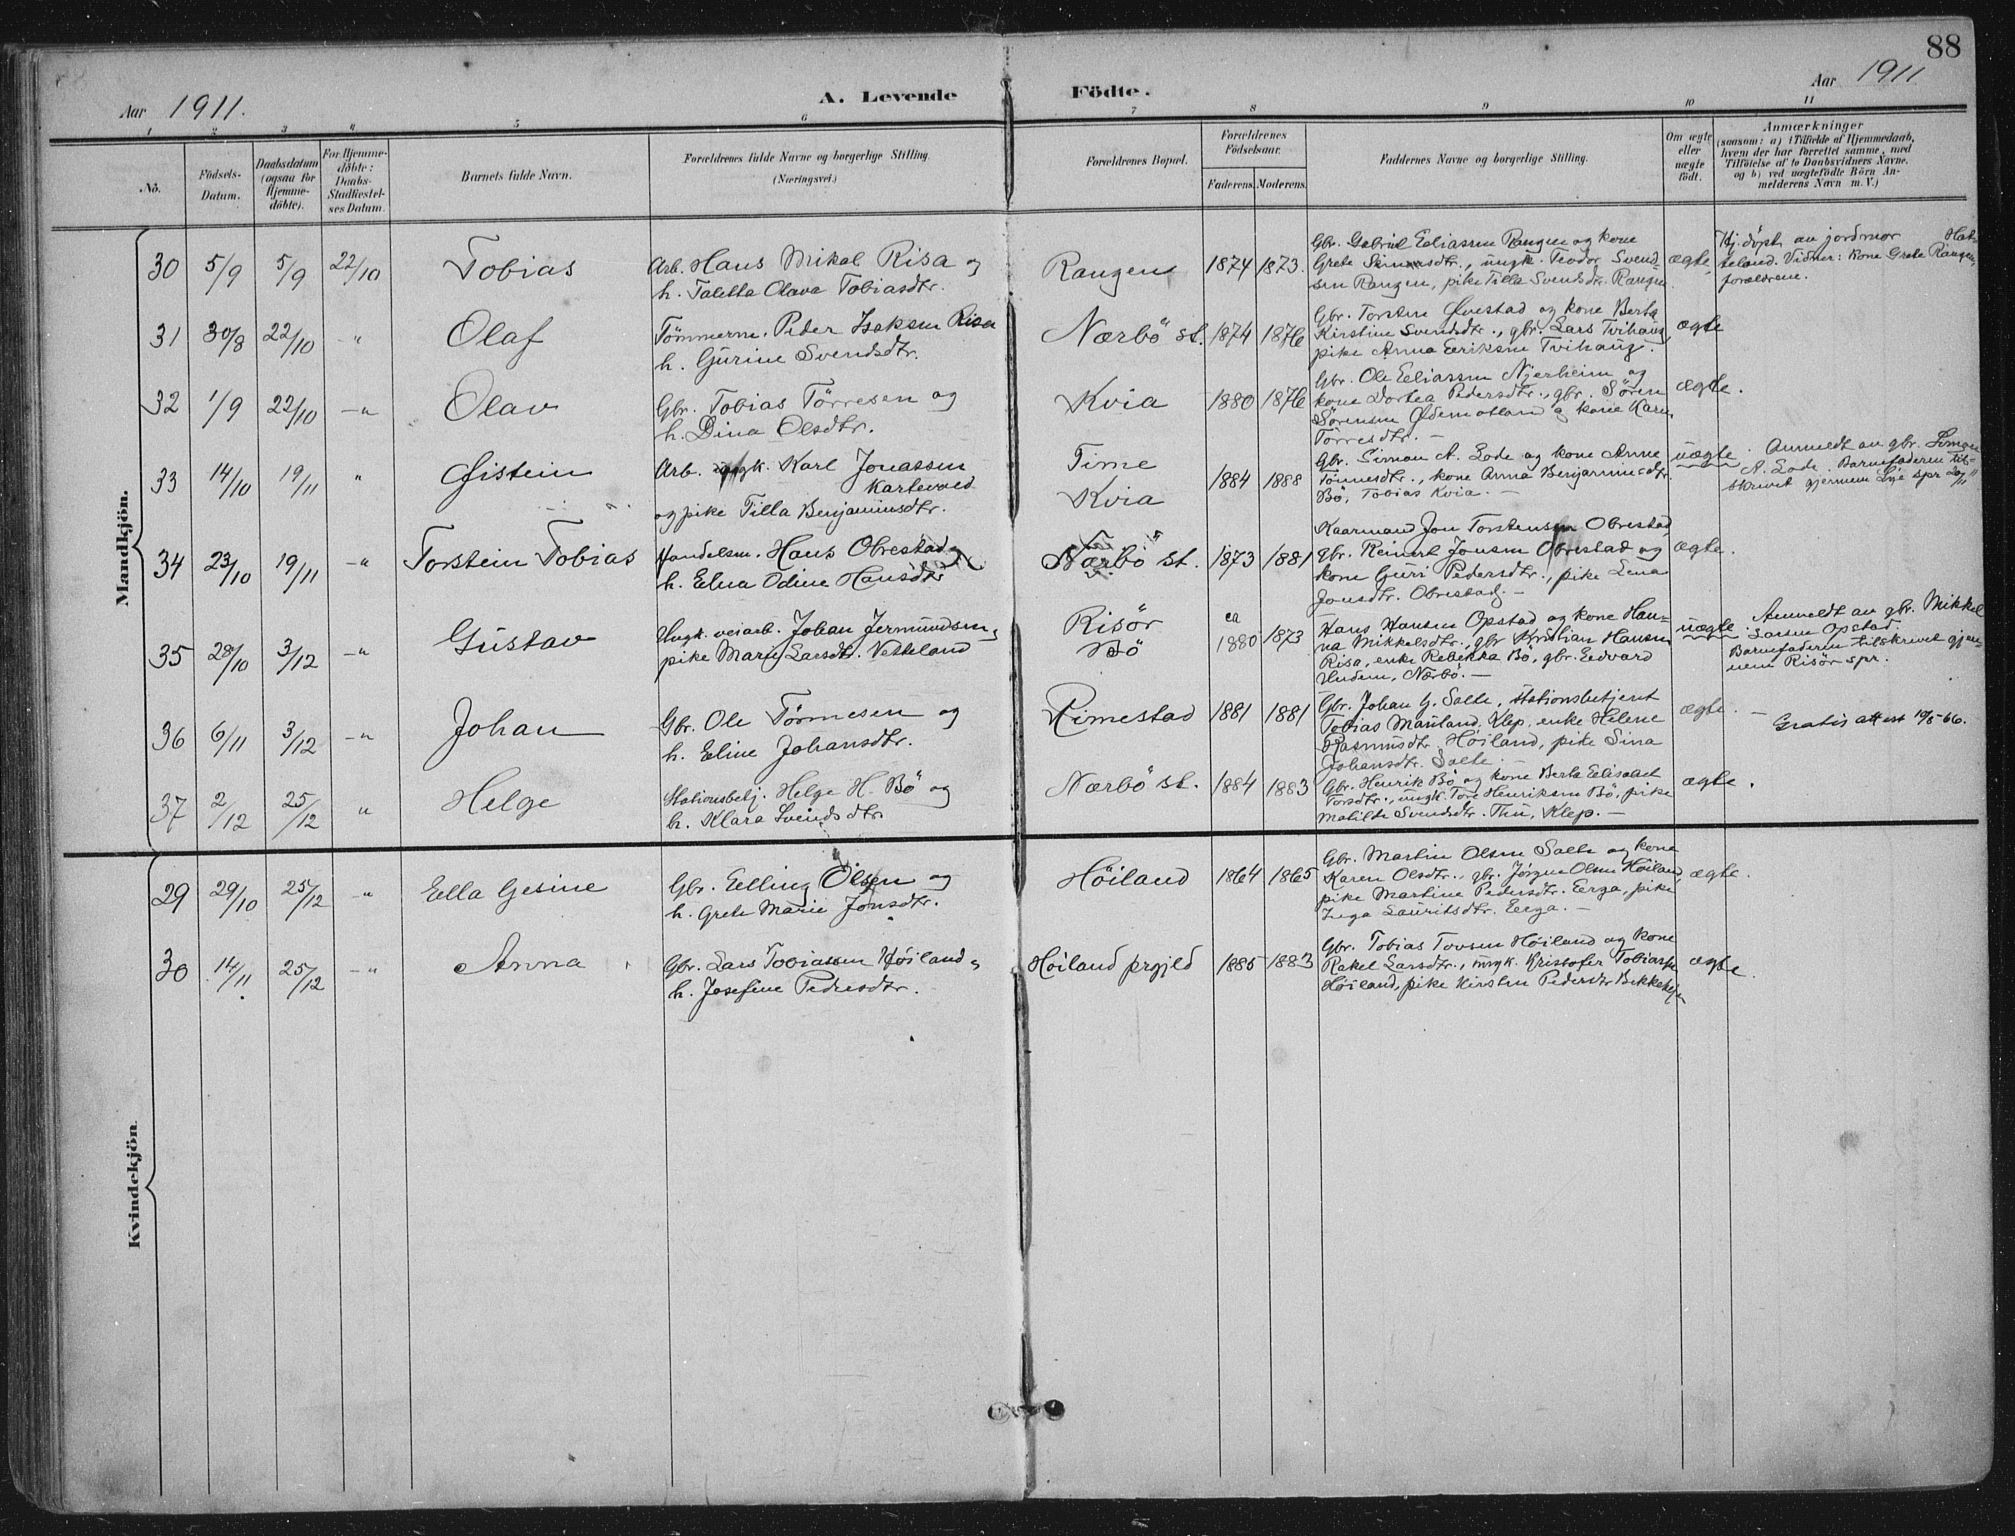 88
Aar 1911.
A. Levende Födte.
Aar 1911
1 2 3 4 5 6 7 8 9 10 11
No.
Födsels-Datum.
Daabsdatum (ogsaa for Hjemme-döbte).
For Hjemme-döbte: Daabs-Stadfæstel-ses Datum.
Barnets fulde Navn.
Forældrenes fulde Navne og borgerlige Stilling. (Næringsvei.)
Forældrenes Bopæl.
Forældrenes Födselsaar.
Faderens. Moderens.
Faddernes Navne og borgerlige Stilling.
Om ægte eller uægte födt.
Anmærkninger
(saasom: a) i Tilfælde af Hjemmedaab, hvem der har forrettet samme, med Tilföielse af to Daabsvidners Navne, og b) ved uægtefödte Börn Anmelderens Navn m. V.)
Mandkjön.
30 5/9 5/9 22/10 Tobias
Arb. Hans Mikal Risa og
h. Taletta Olava Tobiasdtr.
Rangen 1874 1873.
Gbr. Gabriel Eeliassen Rangen og kone
Grete Simonsdtr., ungk. Teodor Svend-
sen Rangen, pike Tilla Svendsdtr. Rangen
ægte
Hj.døpt av jordmor Hat-
teland. Vidner: Kone Grete Rangen,
forældrene.
31 30/8 22/10 -"- Olaf
Tömmerm. Peder Isaksen Risa
h. Gurine Svendsdtr.
Nærbö st. 1874 1876
Gbr. Torsten Øvestad og kone Berta
Kirstine Svendsdtr., gbr. Lars Tvihaug,
pike Anna Eeriksen Tvihaug.
ægte
32 1/9 22/10 -"- Olav
Gbr. Tobias Törresen og
h. Dina Olsdtr.
Kvia 1880 1876
Gbr. Ole Eeliassen Njerheim og
kone Dortea Pedersdtr., gbr. Sören
Sörensen Ødemotland og kone Karen
Törresdtr. -
ægte.
33 14/10 19/11 " Øistein
Arb. ungk. Karl Jonassen
Kartevold
og pike Tilla Benjaminsdtr.
Time
Kvia 1884 1888
Gbr. Simon A. Lode og kone Anne
Tönnesdtr., kone Anna Benjaminsdtr.
Bö, Tobias Kvia. -
uægte
Anmeldt av gbr. Simon
A. Lode. Barnefaderen til-
skrevet gjennem Lye spr 20/11
34 23/10 19/11 -"- Torstein Tobias
Handelsm. Hans Obrestad
h. Elna Odine Hansdtr
Nærbö st. 1873 1881
Kaarmand Jon Torstensen Obrestad,
gbr. Reinert Jonsen Obrestad og
kone Guri Pedersdtr., pike Lena
Jonsdtr. Obrestad. -
ægte.
35 28/10 3/12 -"- Gustav
Ungk. veiarb. Johan Jermundsen,
pike Mari Larsdtr. Vetteland
Risör
Bö
ca
1880 1873
Hans Hansen Opstad og kone Han-
na Mikkelsdtr., gbr Kristian Hansen
Risa, enke Rebekka Bö, gbr. Eedvard
Undem, Nærbö. -
uægte
Anmeldt av gbr. Mikkel
Larsen Opstad.
Barnefaderen tilskrevet gjen-
nem Risör spr.
36 6/11 3/12 -"- Johan
Gbr. Ole Tönnesen og
h. Eline Johansdtr.
Rimestad 1881 1881
Gbr. Johan G. Salte, stationsbetjent
Tobias Mauland, Klep, enke Helene
Rasmusdtr. Höiland, pike Sina
Johansdtr. Salte. -
ægte. -
Gratis attest 10/5-66.
37 2/12 25/12 " Helge
Stationsbetj. Helge H. Bö og
h. Klara Svendsdtr.
Nærbö st. 1884 1883
Gbr. Henrik Bö og kone Berta Eelisabet
Torsdtr., ungk. Tore Henriksen Bö, pike
Matilde Svendsdtr. Thu, Klep. -
ægte.
Kvindekjön.
29 29/10 25/12 -"- Eella Gesine
Gbr. Eelling Olsen og
h. Grete Marie Jonsdtr.
Höiland 1864 1865
Gbr. Martin Olsen Salte og kone
Karen Olsdtr., gbr. Jörgen Olsen Höiland,
pike Martine Pedersdtr. Eerga, pike
Inga Lauritsdtr. Eerga. -
ægte.
30 14/11 25/12 -"- Anna
Gbr. Lars Tobiassen Höiland,
h. Josefine Pedersdtr.
Höiland prgjld 1885 1883
Gbr. Tobias Tovsen Höiland og kone
Rakel Larsdtr., ungk. Kristofer Tobiassen
Höiland, pike Kirsten Pedersdtr
ægte.